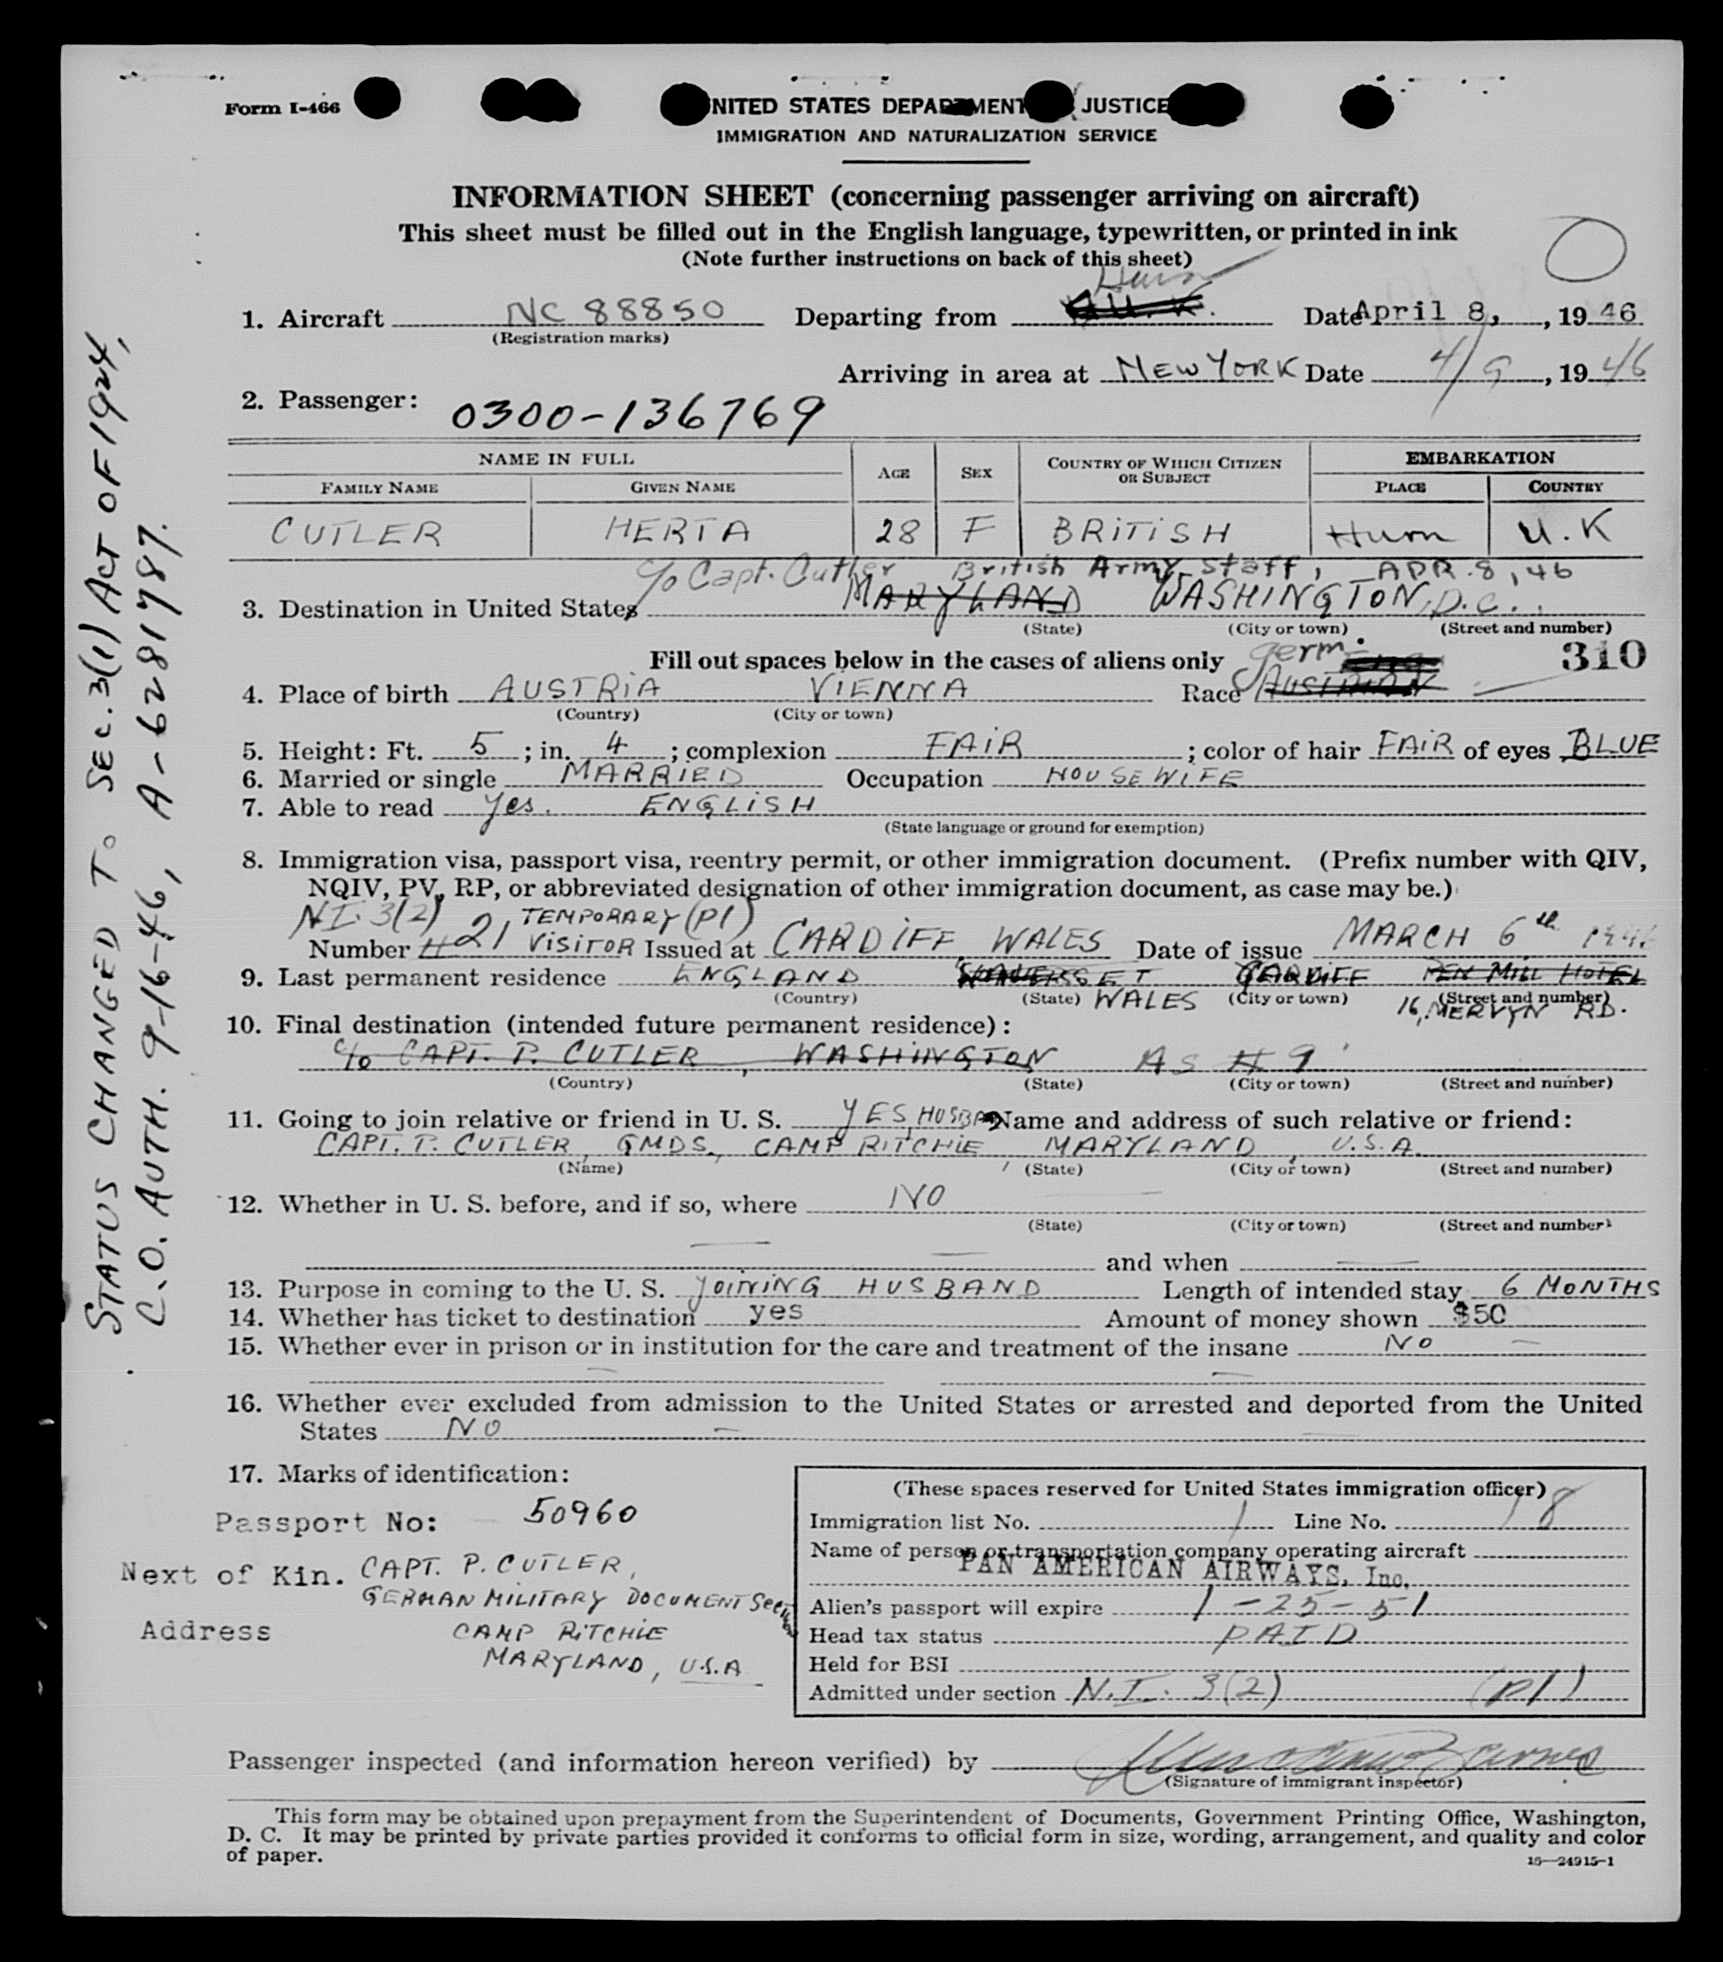 Form I-466
UNITED STATES DEPARTMENT OF JUSTICE
IMMIGRATION AND NATURALIZATION SERVICE
INFORMATION SHEET (concerning passenger arriving on aircraft)
This sheet must be filled out in the English language, typewritten, or printed in ink
(Note further instructions on back of this sheet)
Hurn
1. Aircraft NC 88850 Departing from U.K. Date April 8, , 1946
(Registration marks)
Arriving in area at NEW YORK Date 4/9 , 1946
2. Passenger: 0300-136769
NAME IN FULL AGE SEX COUNTRY OF WHICH CITIZEN OR SUBJECT EMBARKATION
FAMILY NAME GIVEN NAME PLACE COUNTRY
CUTLER HERTA 28 F BRITISH Hurn U.K
c/o Capt. Cutler British Army Staff, APR. 8, 46
3. Destination in United States MARYLAND WASHINGTON, D.C.
(State) (City or town) (Street and number)
Fill out spaces below in the cases of aliens only germ 310
4. Place of birth AUSTRIA VIENNA Race AUSTRIAN
(Country) (City or town)
5. Height: Ft. 5 ; in. 4 ; complexion FAIR ; color of hair FAIR of eyes BLUE
6. Married or single MARRIED Occupation HOUSEWIFE
7. Able to read yes. ENGLISH
(State language or ground for exemption)
8. Immigration visa, passport visa, reentry permit, or other immigration document. (Prefix number with QIV,
NQIV, PV, RP, or abbreviated designation of other immigration document, as case may be.)
N.I. 3(2) TEMPORARY (P1)
Number # 21 VISITOR Issued at CARDIFF, WALES Date of issue MARCH 6th 1946
9. Last permanent residence ENGLAND SOMERSET CARDIFF PEN MILL HOTEL
(Country) (State) WALES (City or town) (Street and number)
16, MERVYN RD.
10. Final destination (intended future permanent residence):
c/o CAPT. P. CUTLER, WASHINGTON AS # 9
(Country) (State) (City or town) (Street and number)
11. Going to join relative or friend in U. S. YES, HUSBAND Name and address of such relative or friend:
CAPT. P. CUTLER, GMDS, CAMP RITCHIE, MARYLAND, U.S.A
(Name) (State) (City or town) (Street and number)
12. Whether in U. S. before, and if so, where NO
(State) (City or town) (Street and number)
and when
13. Purpose in coming to the U. S. JOINING HUSBAND Length of intended stay 6 MONTHS
14. Whether has ticket to destination yes Amount of money shown $50
15. Whether ever in prison or in institution for the care and treatment of the insane NO
16. Whether ever excluded from admission to the United States or arrested and deported from the United
States NO
17. Marks of identification:
Passport No: 50960
Next of Kin. CAPT. P. CUTLER,
GERMAN MILITARY DOCUMENT Section
Address CAMP RITCHIE
MARYLAND, U.S.A
(These spaces reserved for United States immigration officer)
Immigration list No. 1 Line No. 18
Name of person or transportation company operating aircraft
PAN AMERICAN AIRWAYS, Inc.
Alien's passport will expire 1-25-51
Head tax status PAID
Held for BSI
Admitted under section N.I. 3(2) (P1)
Passenger inspected (and information hereon verified) by
(Signature of immigrant inspector)
This form may be obtained upon prepayment from the Superintendent of Documents, Government Printing Office, Washington,
D. C. It may be printed by private parties provided it conforms to official form in size, wording, arrangement, and quality and color
of paper.
16—24915-1
STATUS CHANGED TO SEC. 3(1) ACT OF 1924,
C.O. AUTH. 9-16-46, A-6281787.